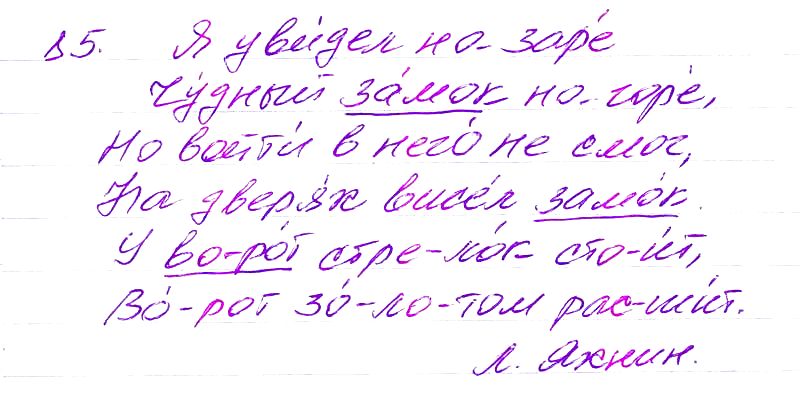 85. Я уви́дел на заре́
Чу́дный за́мок на горе́,
Но войти́ в него́ не смог,
На дверя́х висе́л замо́к.
У во-ро́т стре-ло́к сто-и́т,
Во́-рот зо́-ло-том рас-ши́т.
Л. Яхнин.